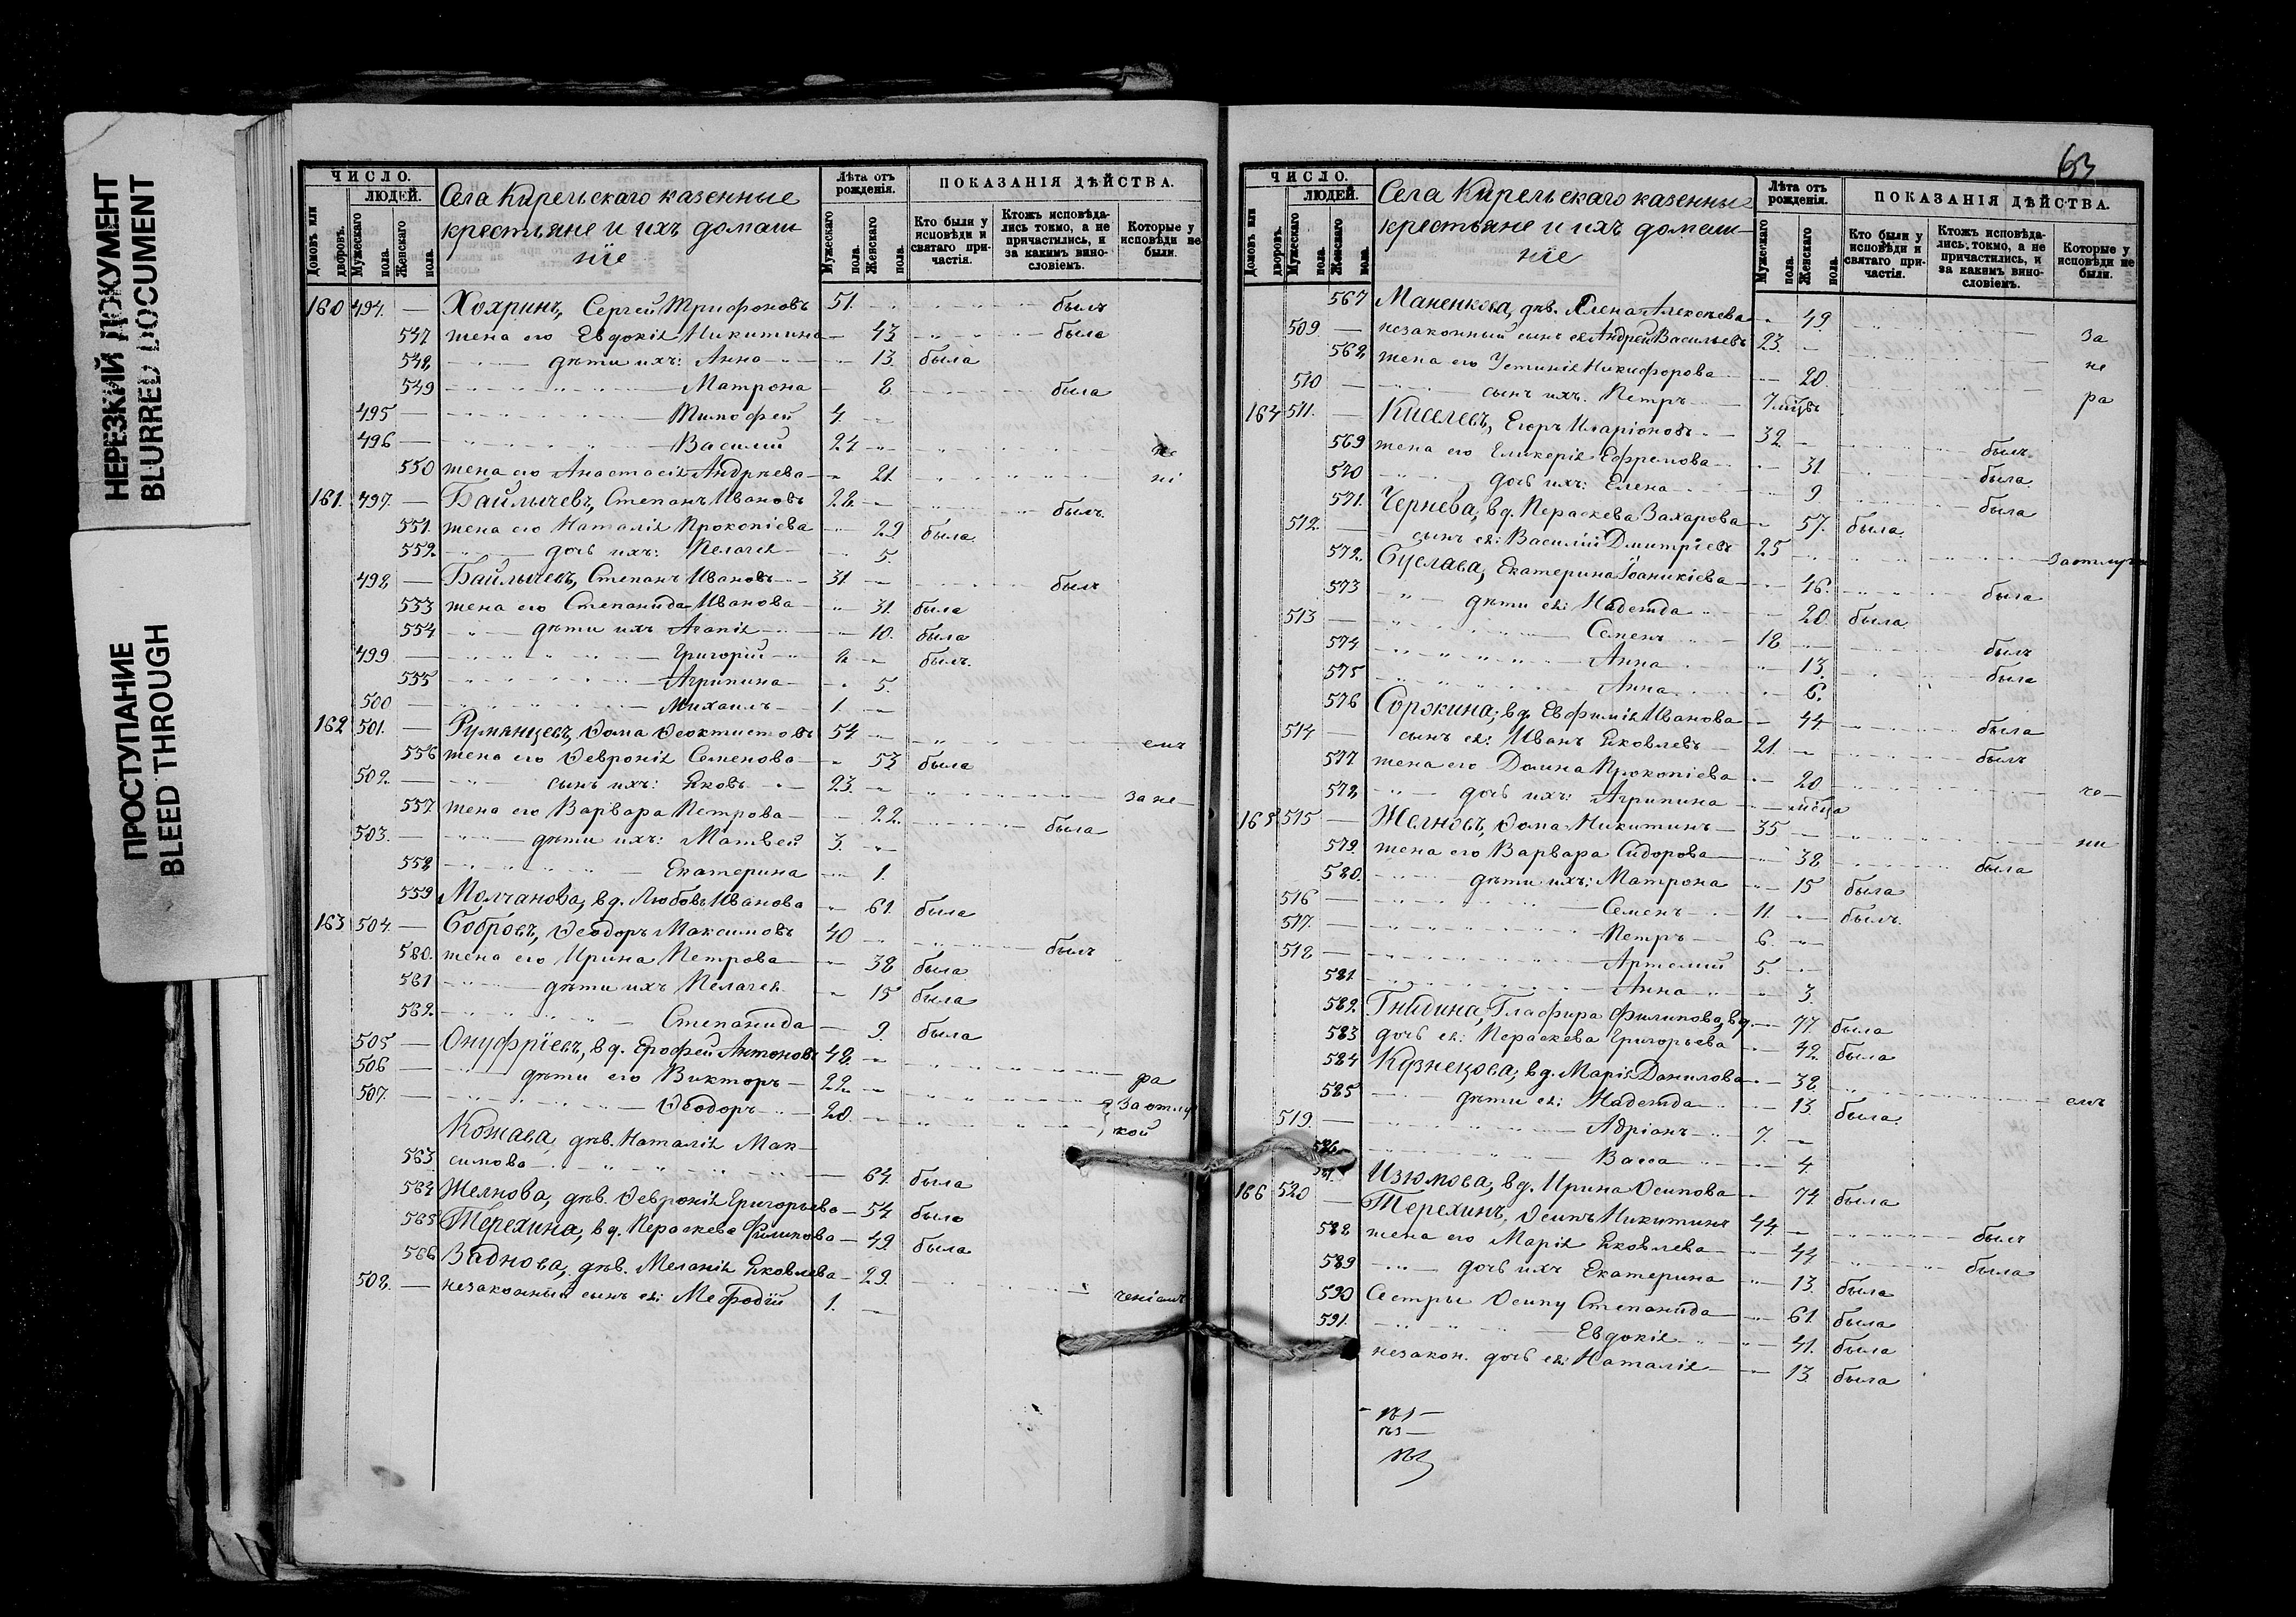 НЕРЕЗКИЙ ДОКУМЕНТ
BLURRED DOCUMENT
ПРОСТУПАНИЕ
BLEED THROUGH
ЧИСЛО.
ЛЮДЕЙ.
Домовъ или дворовъ.
Мужескаго пола.
Женскаго пола.
Села Кирельскаго казенные
крестьяне и ихъ домаш
ніе
Лѣта отъ рожденія.
Мужескаго пола.
Женскаго пола.
ПОКАЗАНІЯ ДѢЙСТВА.
Кто были у исповѣди и святаго причастія.
Ктожъ исповѣдались токмо, а не причастились, и за какимъ винословіемъ.
Которые у исповѣди не были.
160 494. — Хохринъ, Сергей Трифоновъ 51. былъ
547 жена его Евдокія Никитина 43 была
548 дѣти ихъ: Анна 13. была
549 Матрона 8 была
495 — Тимофей 4.
496 — Василий 24 не
550 жена его Анастасія Андреева 21. ні
161. 497. — Байлычевъ, Степанъ Ивановъ 28. былъ.
551. жена его Наталія Прокопіева 29 была
552. дочь ихъ: Пелагея 5.
498 — Байлычевъ, Степанъ Ивановъ 31. былъ
553 жена его Степанида Иванова 31. была
554 дѣти ихъ Агапія 10. была
499 — Григорій 8. былъ.
555 Агрипина 5.
500 — Михаилъ 1.
162 501. — Румянцевъ, Ѳома Ѳеоктистовъ 54 емъ
556 жена его Ѳевронія Семенова 53 была
502. — сынъ ихъ: Яковъ 23. за не
557 жена его Варвара Петрова 22. была
503. — дѣти ихъ: Матвей 3.
558 Екатерина 1.
559 Молчанова, вд. Любовь Иванова 61. была
163 504. — Бобровъ, Ѳеодоръ Максимовъ 40 былъ
560. жена его Ирина Петрова 38 была
561 дѣти ихъ Пелагея 15 была
562. Степанида 9. была
505 — Онуфріевъ, вд. Ерофей Антоновъ 48.
506 — дѣти его Викторъ 22. ра
507. Ѳеодоръ 20. За отлуч
кой
Кожава, дѣв. Наталія Мак
563 симова 64 была
564 Желнова, дѣв. Ѳевронія Григорьева 54 была
565 Терехина, вд. Параскева Филипова 49. была
566 Заднова, дѣв. Меланія Яковлева 29.
508. — незаконный сынъ ея: Мефодій 1. ченіемъ
63
ЧИСЛО.
ЛЮДЕЙ.
Домовъ или дворовъ.
Мужескаго пола.
Женскаго пола.
Села Кирельскаго казенные
крестьяне и ихъ домаш
ніе
Лѣта отъ рожденія.
Мужескаго пола.
Женскаго пола.
ПОКАЗАНІЯ ДѢЙСТВА.
Кто были у исповѣди и святаго причастія.
Ктожъ исповѣдались токмо, а не причастились, и за какимъ винословіемъ.
Которые у исповѣди не были.
567 Маненкова, дѣв. Елена Алексѣева 49 За
509 — незаконный сынъ ея Андрей Васильевъ 23.
568 жена его Устинія Никифорова 20. не
510 — сынъ ихъ. Петръ 7 мѣцвъ ра
164 511. — Киселевъ, Егоръ Иларіоновъ 32. былъ
569 жена его Гликерія Ефремова 31. была
570 дочь ихъ: Елена 9 была
571. Чернева, вд. Параскева Захарова 57. была
512. — сынъ ея: Василій Дмитріевъ 25 За отлуч
572. Суслава, Екатерина Іоаникіева 46. была
573 дѣти ея: Надежда 20. была
513 — Семенъ 18 былъ
574 Анна 13. была
575 Анна 6.
576 Сорокина, вд. Евфимія Иванова 44 была
514 — сынъ ея: Иванъ Яковлевъ 21. былъ
577 жена его Домна Прокопіева 20 че
578 дочь ихъ: Агрипина мѣсца
165 515 — Желновъ, Ѳома Никитинъ 35 ни
579. жена его Варвара Сидорова 38 была
580. дѣти ихъ: Матрона 15 была
516 — Семенъ 11. былъ.
517. — Петръ 6.
518 — Артемий 5.
581. Анна 3.
582. Гнидина, Глафира Филипова, вд. 77. была
583 дочь ея: Параскева Григорьева 42 была
584 Кузнецова, вд. Марія Данилова 38 емъ
585 дѣти ея: Надежда 13. была.
519. — Адріанъ 7.
586 Васса 4.
587. Изюмова, вд. Ирина Осипова 74 была
166 520 — Терехинъ, Осипъ Никитинъ 44. былъ
588 жена его Марія Яковлева 44 была
589 дочь ихъ Екатерина 13. была
590 Сестры Осипу Степанида 61. была
591. Евдокія 41. была
незакон. дочь ея: Наталія 13. была